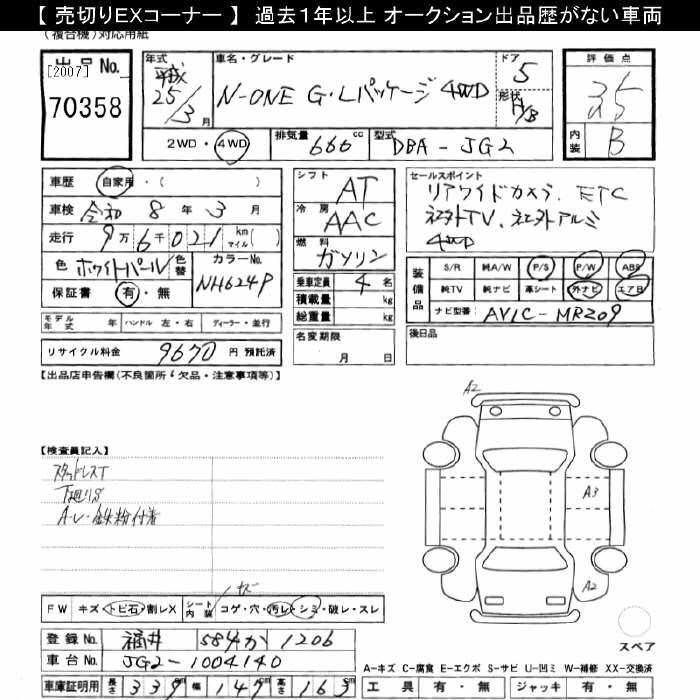 【売切りEXコーナー】 過去1年以上 オークション出品歴がない車両
(複合機)対応用紙
出品No.
[2007]
70358
年式
平成
25/3月
車名・グレード
N-ONE G・Lパッケージ 4WD
ドア
5
形状
H/B
2WD・4WD
排気量 660 cc
型式 DBA-JG2
評価点
内装
B
車歴 自家用・( )
車検 令和 8年 3月
走行 9万6千021 km マイル( )
色 ホワイトパール 色替
カラーNo. NH624P
保証書 有・無
シフト AT
冷房 AAC
燃料 ガソリン
乗車定員 4名
積載量 kg
総重量 kg
名変期限
月 日
セールスポイント
リアワイドカメラ、ETC
社外TV、社外アルミ
4WD
装備品
S/R 純A/W P/S P/W ABS
純TV 純ナビ 革シート 外ナビ エアB
ナビ型番 AVIC-MRZ09
後日品
モデル年式 年 ハンドル 左・右 ディーラー・並行
リサイクル料金 9670 円 預託済
【出品店申告欄(不良箇所・欠品・注意事項等)】
【検査員記入】
スタッドレスT
下廻りS
A・U・鉄粉付着
A2
A3
A2
FW キズ・トビ石・割レX
シート内装 コゲ・穴・汚レ・シミ・破レ・スレ
スペア
登録No. 福井 584 か 1206
車台No. JG2-1004140
車庫証明用 長さ 339 幅 147 高さ 163
A-キズ C-腐食 E-エクボ S-サビ U-凹ミ W-補修 XX-交換済
工具 有・無 ジャッキ 有・無